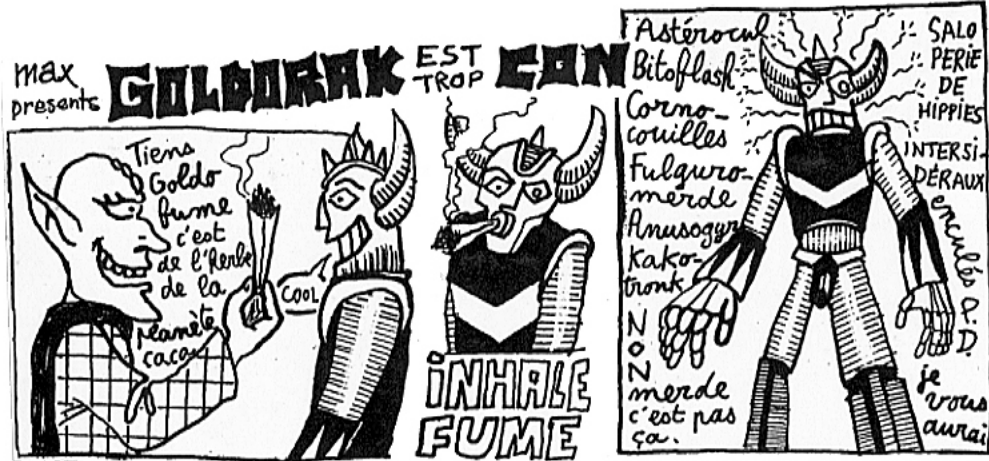 max
presents
GOLDORAK
EST
TROP
CON
Tiens
Goldo
fume
c'est
de l'herbe
de la
Planète
caca
COOL
INHALE
FUME
Astérocul
Bitoflash
Corno-
couilles
Fulguro-
merde
Anusogyr
Kako-
tronk
NON
merde
c'est pas
ça.
SALO
PERIE
DE
HIPPIES
INTERSI-
DÉRAUX
enculés P.D.
je
vous
aurai